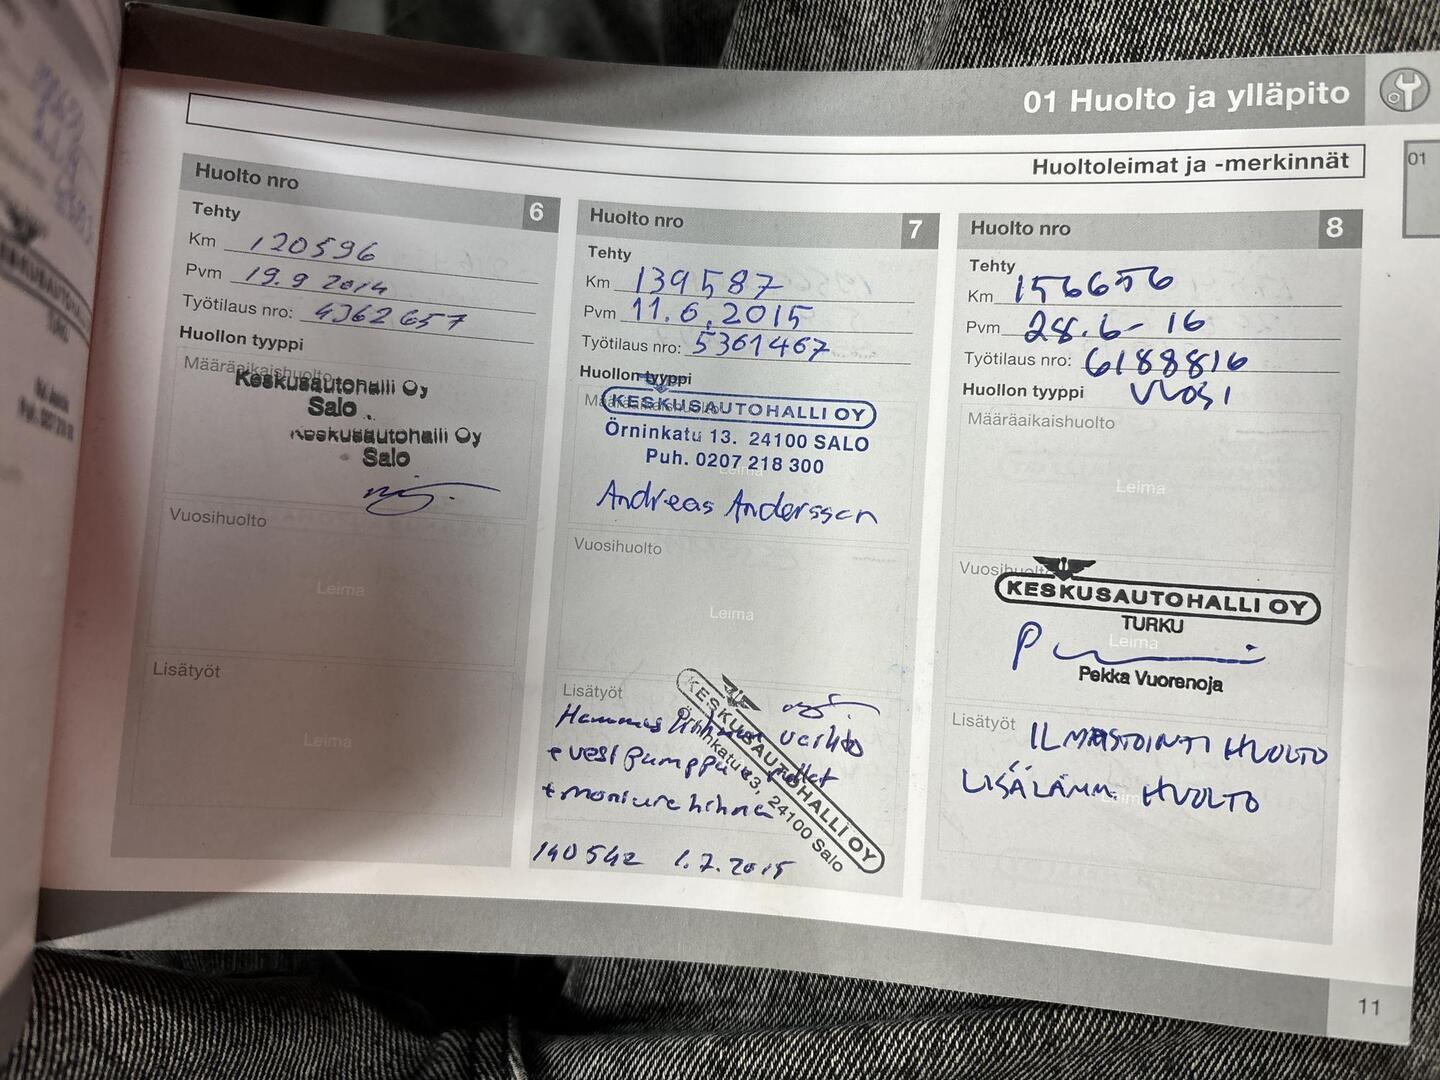 01 Huolto ja ylläpito
Huoltoleimat ja -merkinnät
01
Huolto nro 6
Tehty
Km 120596
Pvm 19.9 2014
Työtilaus nro: 4362657
Huollon tyyppi
Määräaikaishuolto
Keskusautohalli Oy
Salo
Keskusautohalli Oy
Salo
Vuosihuolto
Leima
Lisätyöt
Leima
Huolto nro 7
Tehty
Km 139587
Pvm 11.6.2015
Työtilaus nro: 5361467
Huollon tyyppi
Määräaikaishuolto
KESKUSAUTOHALLI OY
Örninkatu 13. 24100 SALO
Puh. 0207 218 300
Leima
Andreas Andersson
Vuosihuolto
Leima
Lisätyöt
KESKUSAUTOHALLI OY
Örninkatu 13, 24100 Salo
Hammas hihnan vaihto
+ vesipumppu + rullat
+ moniura hihna
140542 1.7.2015
Huolto nro 8
Tehty
Km 156656
Pvm 28.6-16
Työtilaus nro: 6188816
Huollon tyyppi VUOSI
Määräaikaishuolto
Leima
Vuosihuolto
KESKUSAUTOHALLI OY
TURKU
Leima
Pekka Vuorenoja
Lisätyöt ILMASTOINTI HUOLTO
LISÄLÄMM. HUOLTO
Leima
11